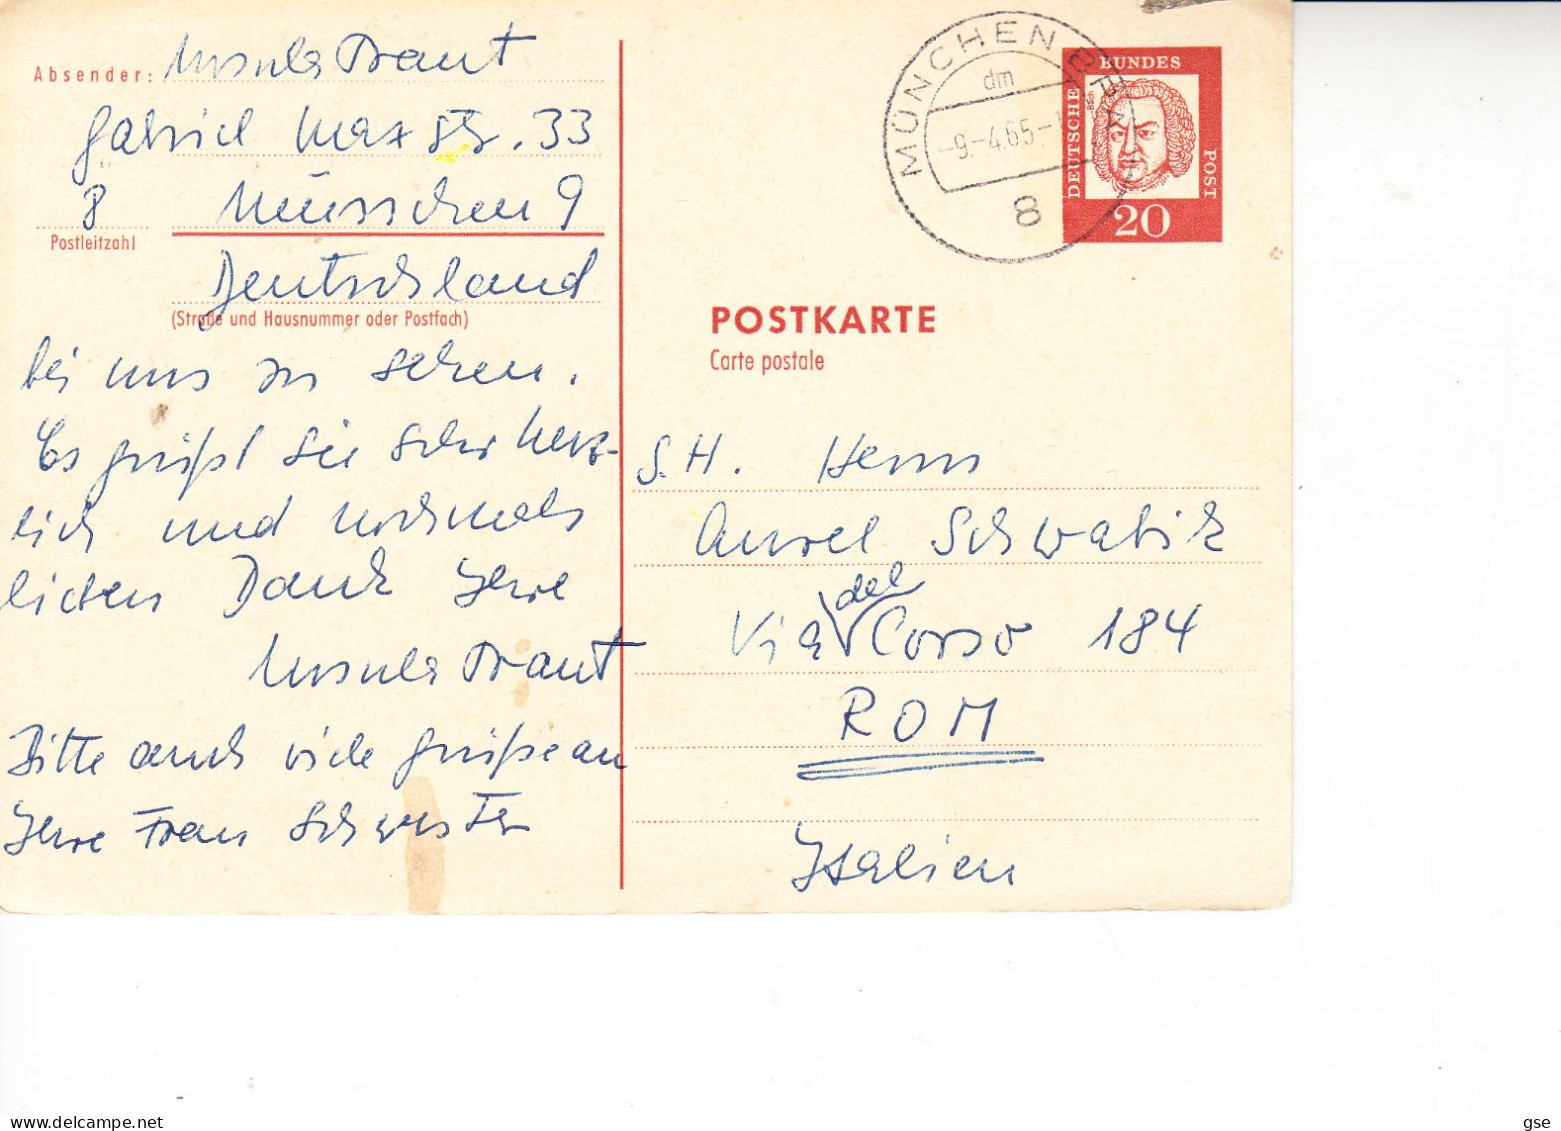 Absender: Ursula Traut
Gabriel Max Str. 33
8 München 9
Postleitzahl
Deutschland
(Straße und Hausnummer oder Postfach)
bei uns zu sehen.
Es grüßt Sie sehr herz-
lich und nochmals
lieben Dank Ihre
Ursula Traut
Bitte auch viele Grüße an
Ihre Frau Schwester
MÜNCHEN BPA
dm
-9.-4.65.-1
8
DEUTSCHE BUNDES POST
20
POSTKARTE
Carte postale
S.H. Herrn
Aurel Schwabik
Via del Corso 184
ROM
Italien
delcampe.net
gse